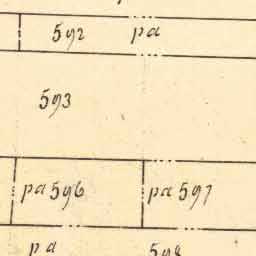 592 pa
593
pa 596 pa 597
pa 598